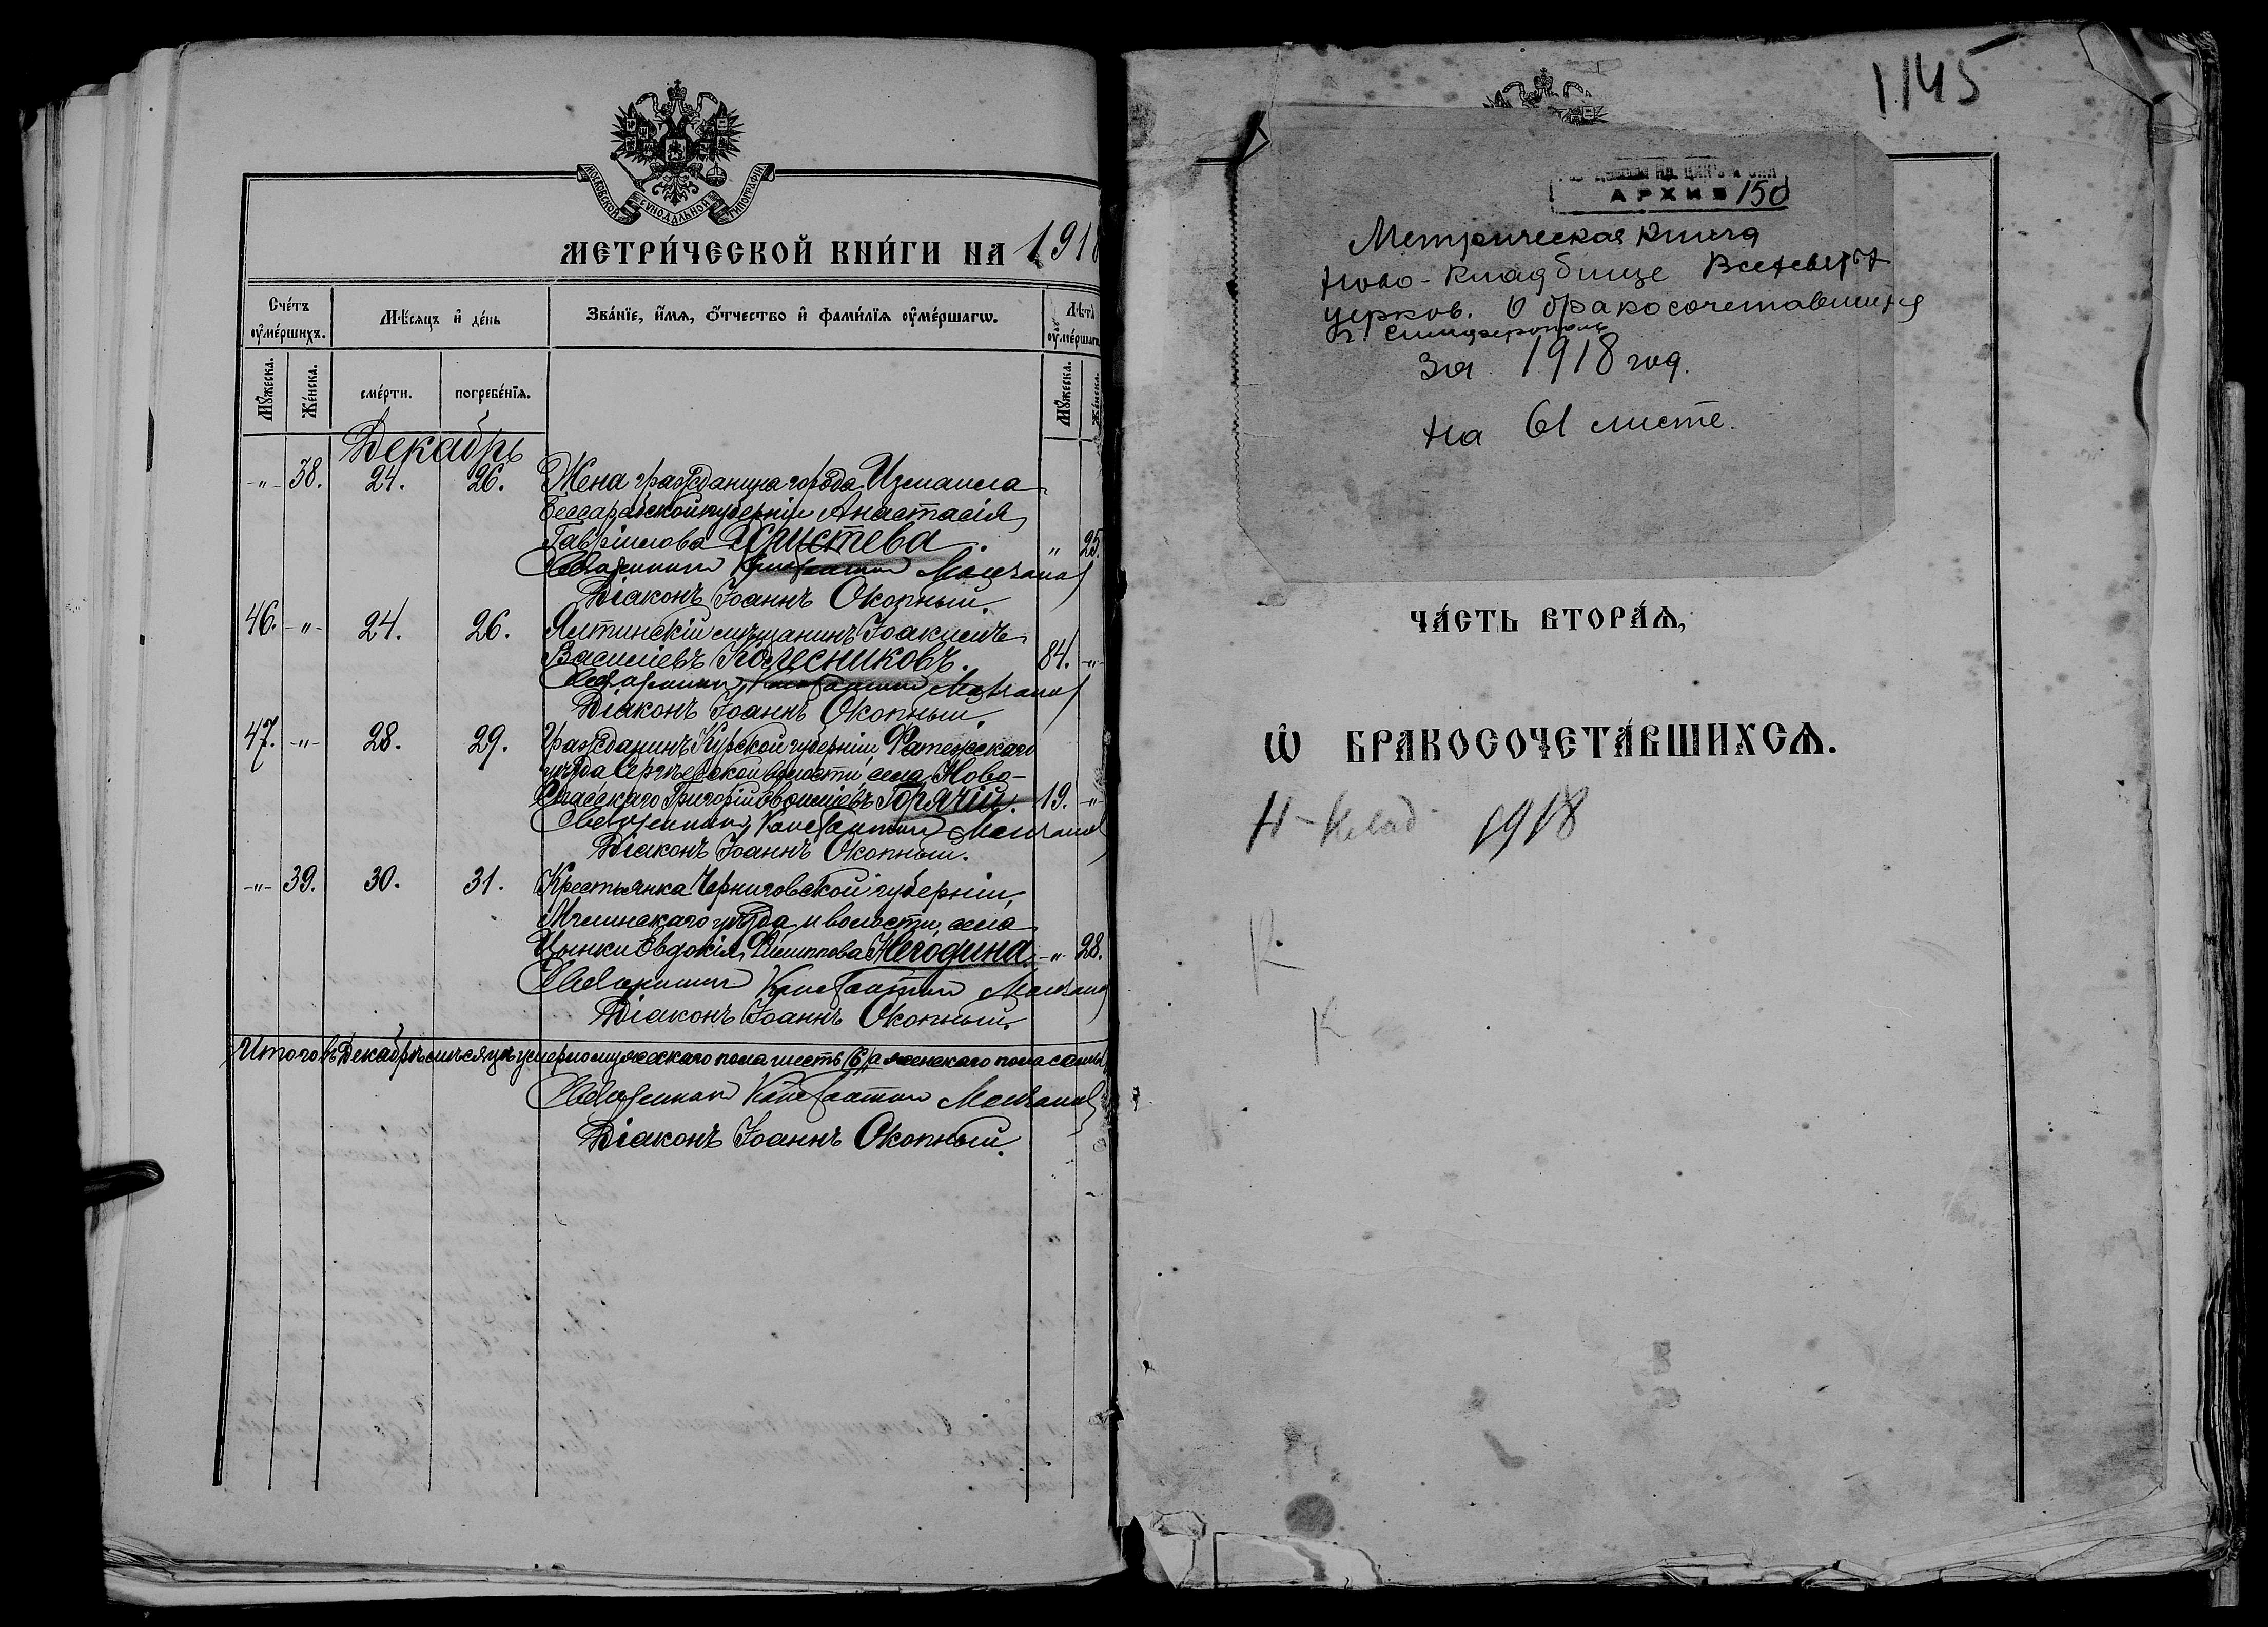 МОСКОВСКОЙ СѴНОДАЛЬНОЙ ТИПОГРАФІИ
МЕТРИ́ЧЕСКОЙ КНИ́ГИ НА 1918
Сче́тъ ᲂу҆ме́ршихъ.
Мѣ́сяцъ и҆ де́нь
Зва́нїе, и҆́мя, ѻ҆́тчество и҆ фами́лїя ᲂу҆ме́ршагѡ.
Лѣ́тъ ᲂу҆ме́ршаг
Мꙋ́жеска.
Же́нска.
сме́рти.
погребе́нїя.
Мꙋ́жеска.
Же́нска.
Декабрь
-"- 38. 24. 26. Жена гражданина города Измаила
Бессарабской губерніи Анастасія
Гавріилова Христева. " 25.
Священникъ Константинъ Молчановъ
Діаконъ Іоаннъ Окопный.
46. -"- 24. 26. Ялтинскій мѣщанинъ Іоакимъ
Василіевъ Колесниковъ. 84. -"-
Священникъ Константинъ Молчановъ
Діаконъ Іоаннъ Окопный.
47. -"- 28. 29. Гражданинъ Курской губерніи, Фатежскаго
уѣзда Сергѣевской волости, села Ново-
Спасскаго Григорій Горячій. 19. -"-
Священникъ Константинъ Молчановъ
Діаконъ Іоаннъ Окопный.
-"- 39. 30. 31. Крестьянка Черниговской губерніи,
Мглинскаго уѣзда и волости, села
Цынки Евдокія Филиппова Негодина. -"- 28.
Священникъ Константинъ Молчановъ
Діаконъ Іоаннъ Окопный.
Итого въ Декабрѣ мѣсяцѣ умерло мужескаго пола шесть (6), а женскаго пола семь
Священникъ Константинъ Молчановъ
Діаконъ Іоаннъ Окопный.
1145
АРХИВ 150
Метрическая книга
Ново-кладбище Всехсвятск
церков. О бракосочетавшихся
г. Симферополь
за 1918 год.
На 61 листе.
ЧА́СТЬ ВТОРА́Ѧ,
Ѡ҆ БРАКОСОЧЕТА́ВШИХСѦ.
Н-Клад 1918
К
К